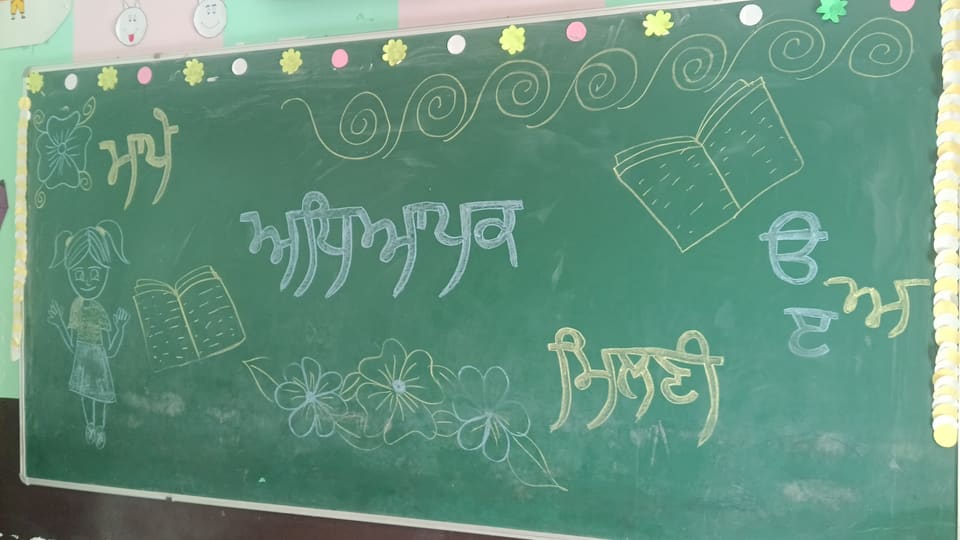 ਮਾਪੇ
ਅਧਿਆਪਕ
ੳ
ਅ
ੲ
ਮਿਲਣੀ